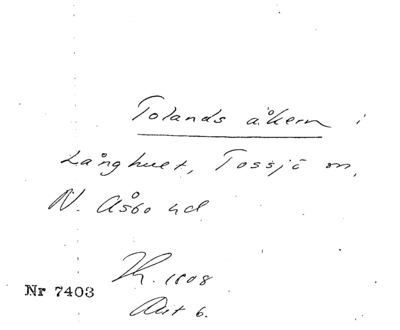 Tolands åkern i
Långhult, Tossjö sn,
N. Åsbo hd
Nr 7403
1808
Akt 6.